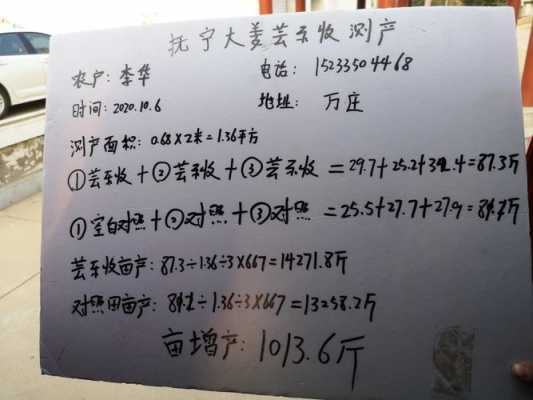 抚宁大姜芸乐收测产
农户: 李华 电话: 15233504468
时间: 2020.10.6 地址: 万庄
测产面积: 0.68×2米=1.36平方
①芸乐收+②芸乐收+③芸乐收=29.7+25.2+32.4=87.3斤
①空白对照+②对照+③对照=25.5+27.7+27.9=81.1斤
芸乐收亩产: 87.3÷1.36÷3×667=14271.8斤
对照田亩产: 81.1÷1.36÷3×667=13258.2斤
亩增产: 1013.6斤